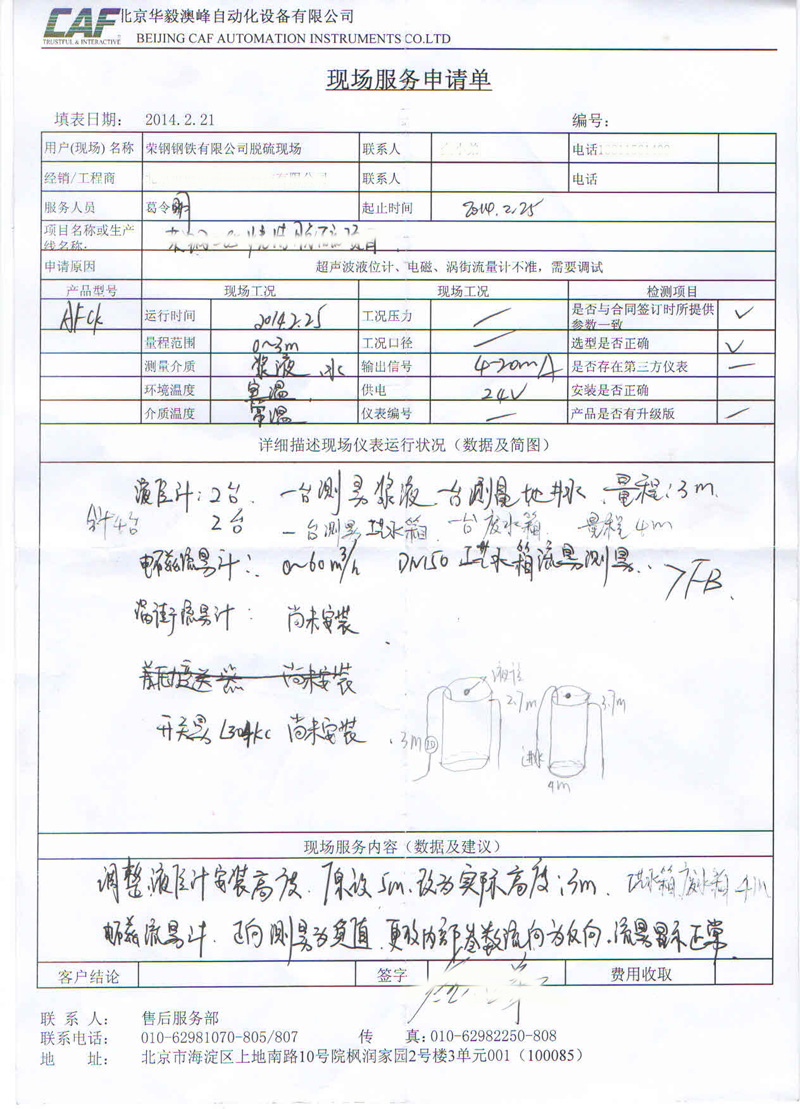 CAF
TRUSTFUL & INTERACTIVE
北京华毅澳峰自动化设备有限公司
BEIJING CAF AUTOMATION INSTRUMENTS CO.LTD
现场服务申请单
填表日期: 2014.2.21 编号:
用户(现场)名称 荣钢钢铁有限公司脱硫现场 联系人 电话
经销/工程商 联系人 电话
服务人员 葛令 起止时间 2014.2.25
项目名称或生产线名称:
申请原因 超声波液位计、电磁、涡街流量计不准，需要调试
产品型号 现场工况 现场工况 检测项目
运行时间 2014.2.25 工况压力 — 是否与合同签订时所提供参数一致 ✓
量程范围 0~3m 工况口径 — 选型是否正确 ✓
测量介质 浆液 水 输出信号 4-20mA 是否存在第三方仪表 —
环境温度 常温 供电 24V 安装是否正确
介质温度 常温 仪表编号 — 产品是否有升级版 —
详细描述现场仪表运行状况（数据及简图）
液位计: 2台. 一台测量浆液 一台测量地井水. 量程: 3m.
共计4台 2台 一台测量工艺水箱. 一台废水箱. 量程4m
电磁流量计: 0~60m³/h DN150 工艺水箱流量测量.
涡街流量计: 尚未安装
尚未安装
开关量 尚未安装
液位
2.7m 3.7m
3m
进水
4m
现场服务内容（数据及建议）
调整液位计安装高度. 原设5m. 改为实际高度: 3m. 工艺水箱废水箱4m
电磁流量计. 正向测量为负值. 更改内部参数流向为反向. 流量显示正常.
客户结论 签字 费用收取
联 系 人: 售后服务部
联系电话: 010-62981070-805/807 传 真: 010-62982250-808
地 址: 北京市海淀区上地南路10号院枫润家园2号楼3单元001（100085）